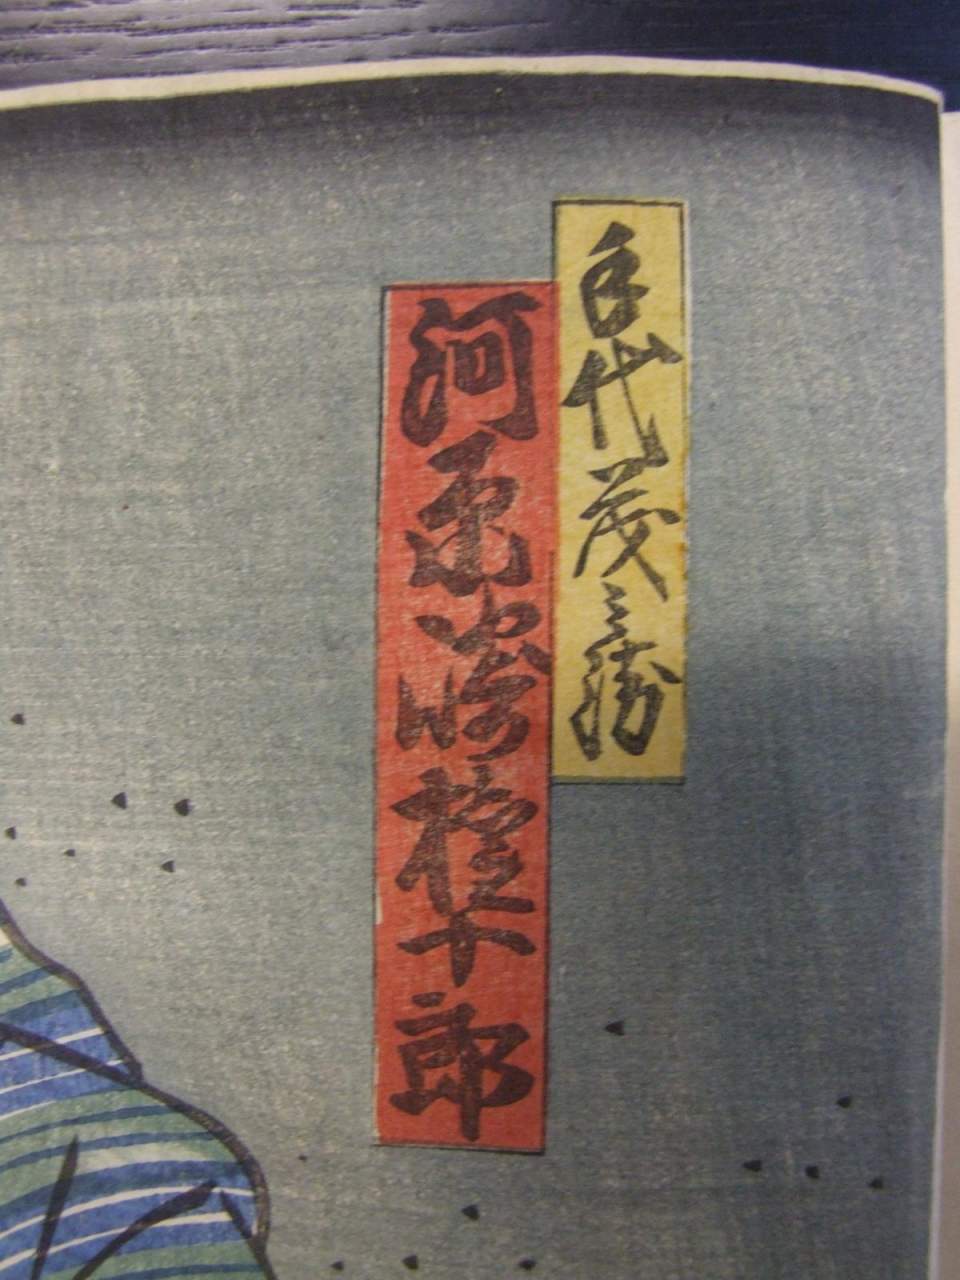 手代茂三勝
河原崎権十郎